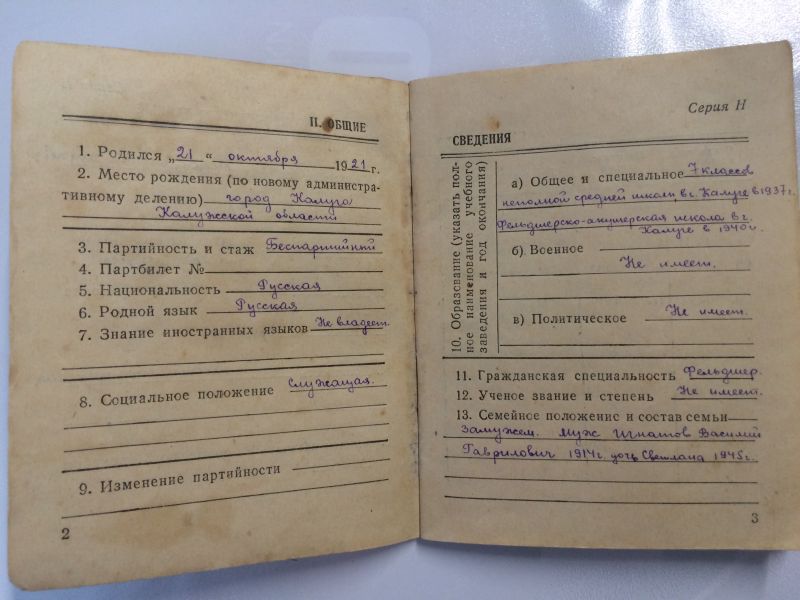 II. ОБЩИЕ
1. Родился „21“ октября 1921 г.
2. Место рождения (по новому администра-
тивному делению) город Калуга
Калужской области
3. Партийность и стаж Беспартийный
4. Партбилет №
5. Национальность Русская
6. Родной язык Русская
7. Знание иностранных языков Не владеет.
8. Социальное положение Служащая.
9. Изменение партийности
2
Серия Н
СВЕДЕНИЯ
10. Образование (указать пол-
ное наименование учебного
заведения и год окончания)
а) Общее и специальное 7 классов
неполной средней школы в г. Калуге в 1937г.
Фельдшерско-акушерская школа в г.
Калуге в 1940г.
б) Военное
Не имеет.
в) Политическое Не имеет.
11. Гражданская специальность Фельдшер.
12. Ученое звание и степень Не имеет.
13. Семейное положение и состав семьи
Замужем. Муж Игнатов Василий
Гаврилович 1914г. дочь Светлана 1945г.
3